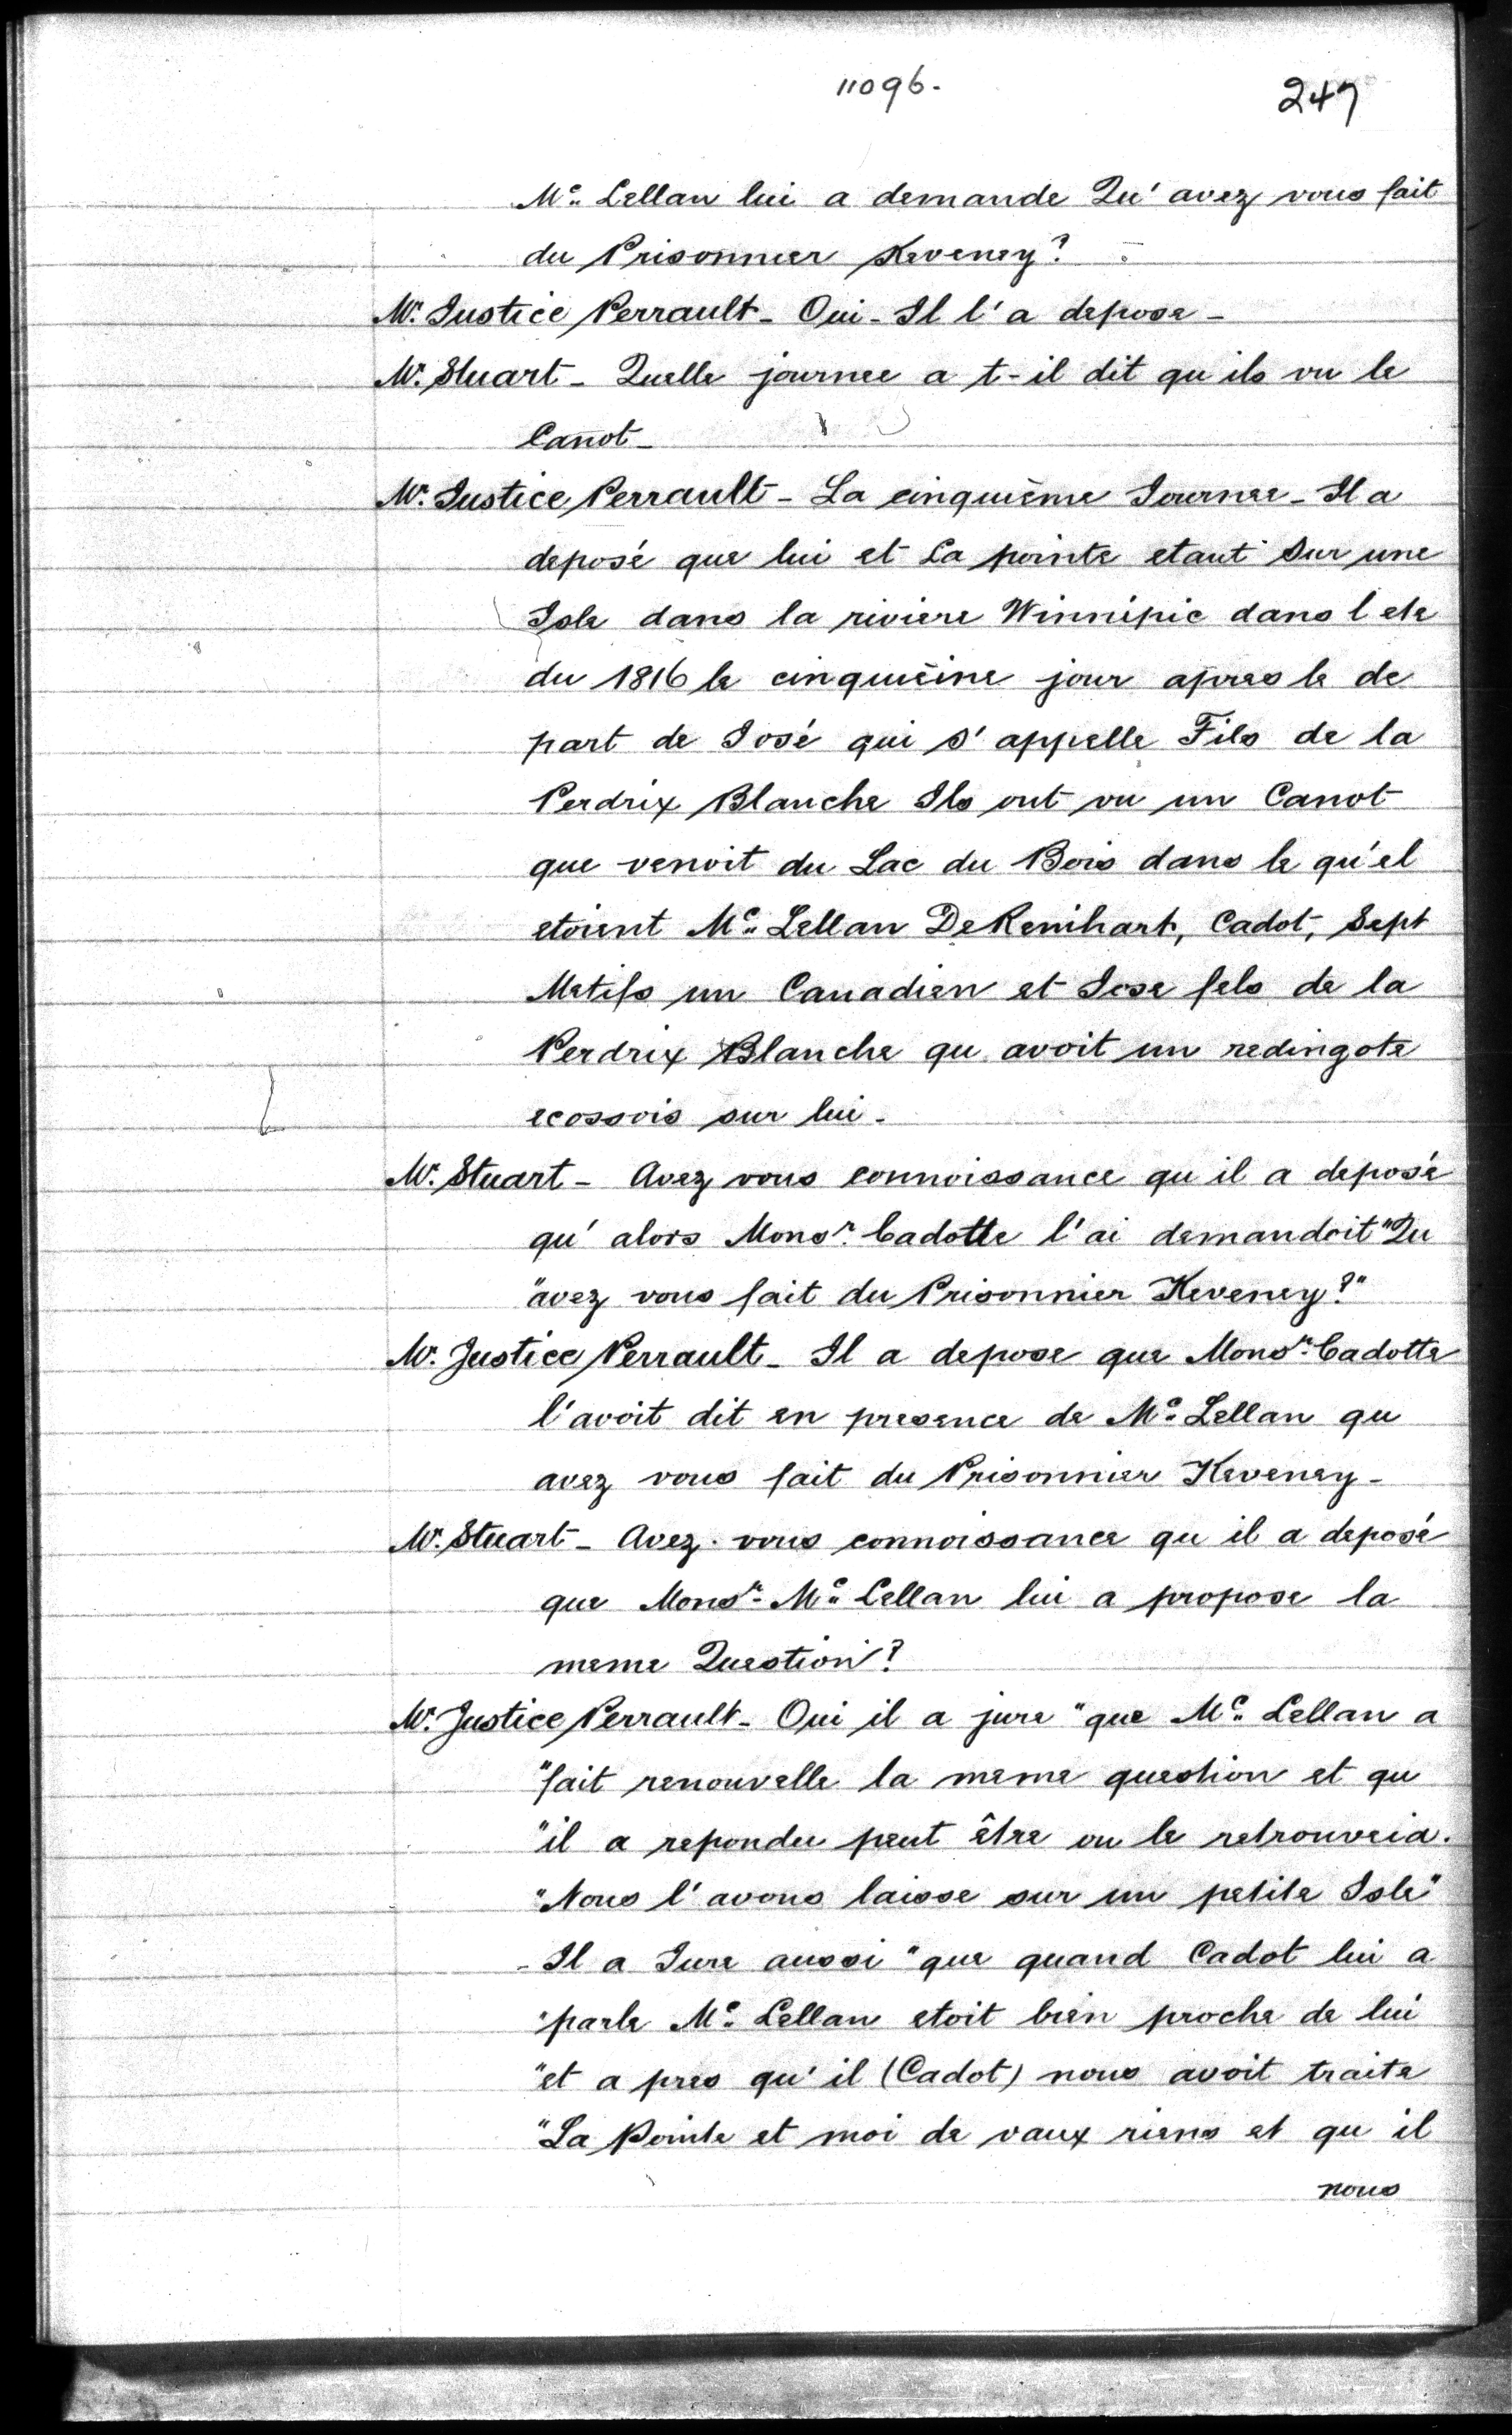 11096.
247
Mc. Lellan lui a demande Qu' avez vous fait
du Prisonnier Keveney?
Mr. Justice Perrault - Oui - Il l' a depose -
Mr. Stuart - Quelle journee a t-il dit qu ils vu le
Canot -
Mr. Justice Perrault - La cinquième Journee - Il a
deposé que lui et La pointe etant Sur une
Isle dans la riviere Winnipic dans l ete
du 1816 le cinquième jour apres le de
part de José qui s' appelle Fils de la
Perdrix Blanche Ils ont vu un Canot
que venoit du Lac du Bois dans le qu'el
etoient Mc. Lellan De Reinhart, Cadot, Sept
Metifs un Canadien et Jose fels de la
Perdrix Blanche qu avoit un redingote
ecossois sur lui -
Mr. Stuart - Avez vous connoissance qu il a deposé
qu' alors Monsr. Cadotte l' ai demandoit "Qu
"avez vous fait du Prisonnier Keveney?"
Mr. Justice Perrault - Il a depose que Monsr. Cadotte
l' avoit dit en presence de Mc. Lellan qu
avez vous fait du Prisonnier Keveney -
Mr. Stuart - Avez vous connoissance qu il a deposé
que Monsr. Mc. Lellan lui a propose la
meme Question?
Mr. Justice Perrault - Oui il a jure "que Mc. Lellan a
"fait renouvelle la meme question et qu
"il a repondu peut être on le retrouveia.
"Nous l' avons laisse sur un petite Isle"
- Il a Jure aussi "que quand Cadot lui a
"parle Mc. Lellan etoit bien proche de lui
"et a pres qu' il (Cadot) nous avoit traite
"La Pointe et moi de vaux riens et qu il
nous